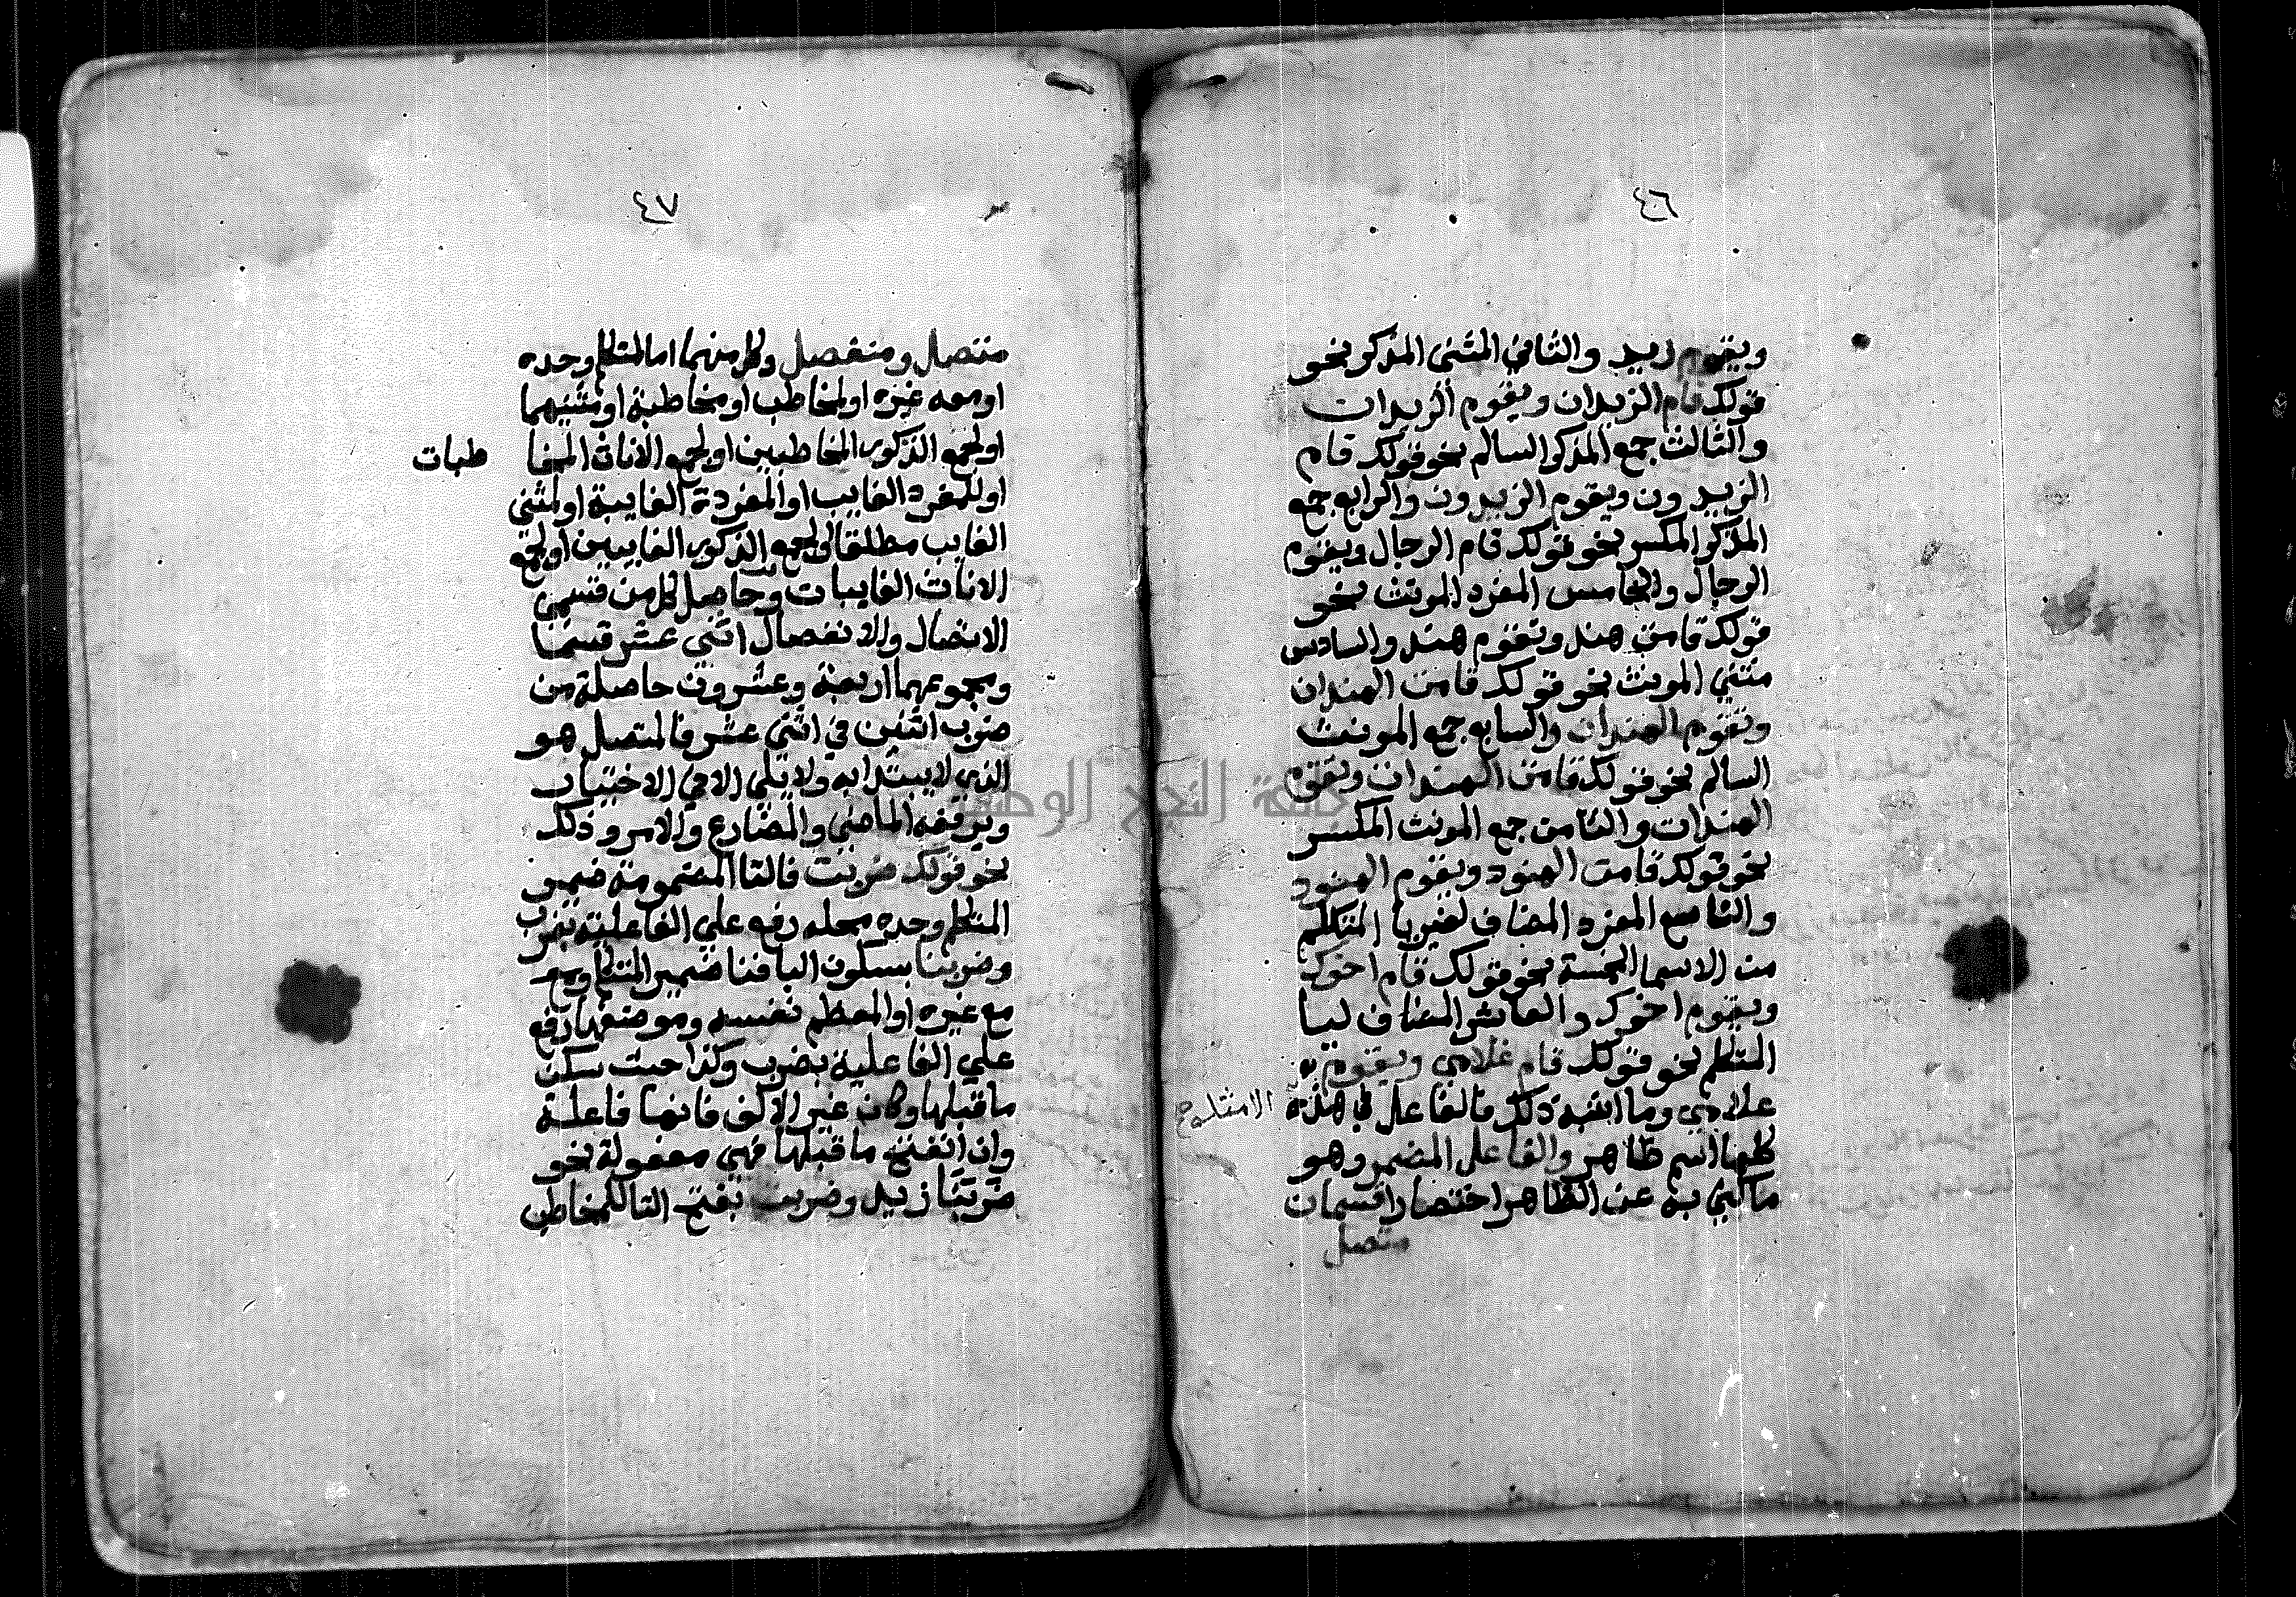 ٤٦
ويقوم زيد والثاني المثنى المذكر نحو
قولك قام الزيدان ويقوم الزيدان
والثالث جمع المذكر السالم نحو قولك قام
الزيدون ويقوم الزيدون والرابع جمع
المذكر المكسر نحو قولك قام الرجال ويقوم
الرجال والخامس المفرد المونث نحو
قولك قامت هند وتقوم هند والسادس
مثني المونث نحو قولك قامت الهندان
وتقوم الهندان والسابع جمع المونث
السالم نحو قولك قامت الهندات وتقوم
الهندات والثامن جمع المونث المكسر
نحو قولك قامت الهنود وتقوم الهنود
والتاسع المفرد المضاف لغير يا المتكلم
من الاسما الخمسة نحو قولك قام اخوك
ويقوم اخوك والعاشر المضاف ليا
المتكلم نحو قولك قام غلامي ويقوم
غلامي وما اشبه ذلك فالفاعل في هذه الامثلة
كلها اسم ظاهر والفاعل المضمر وهو
ما كني به عن الظاهر اختصارا قسمان
متصل
٤٧
متصل ومنفصل وكل منهما اما للمتكلم وحده
او معه غيره او لمخاطب او مخاطبة او مثنيهما
او لجمع الذكور المخاطبين او لجمع الاناث المخا طبات
او للمفرد الغايب او المفردة الغايبة او لمثنى
الغايب مطلقا او لجمع الذكور الغايبين او لجمع
الاناث الغايبات وحاصل كل من قسمي
الاتصال والانفصال اثنى عشر قسما
ومجموعهما اربعة وعشرون حاصلة من
ضرب اثنين في اثني عشر فالمتصل هو
الذي لا يبتدا به ولا يلي الا في الاختيار
ويرفعه الماضي والمضارع والامر وذلك
نحو قولك ضربت فالتا المضمومة ضمير
المتكلم وحده محله رفع علي الفاعلية بضرب
وضربنا بسكون البا فنا ضمير المتكلم ومعه
مع غيره او المعظم نفسه وموضعها رفع
علي الفاعلية بضرب وكذا حيث سكن
ما قبلها وكان غير الالف فانها فاعلة
وان انفتح ما قبلها فهي مفعولة نحو
ضربنا زيد وضربت بفتح التا للمخاطب
جامعة النجاح الوطنية